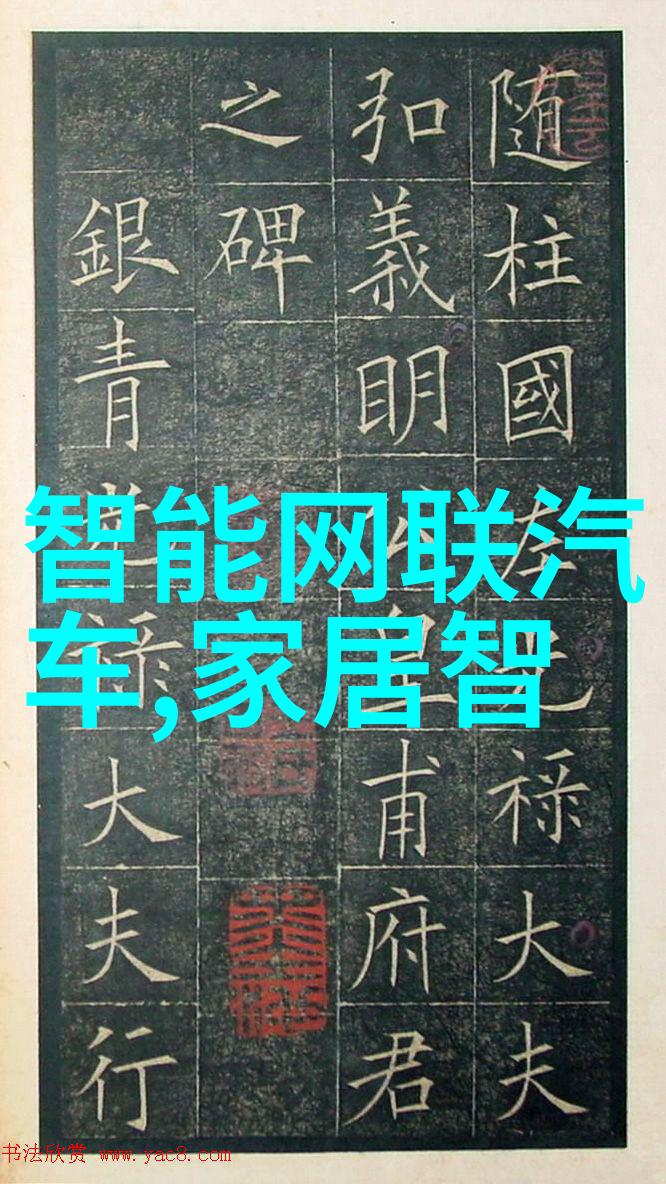 随柱國左光禄大夫
弘義明公皇甫府君
之碑
銀青光禄大夫行
智能网联汽
车,家居智
书法欣赏 www.yac8.com